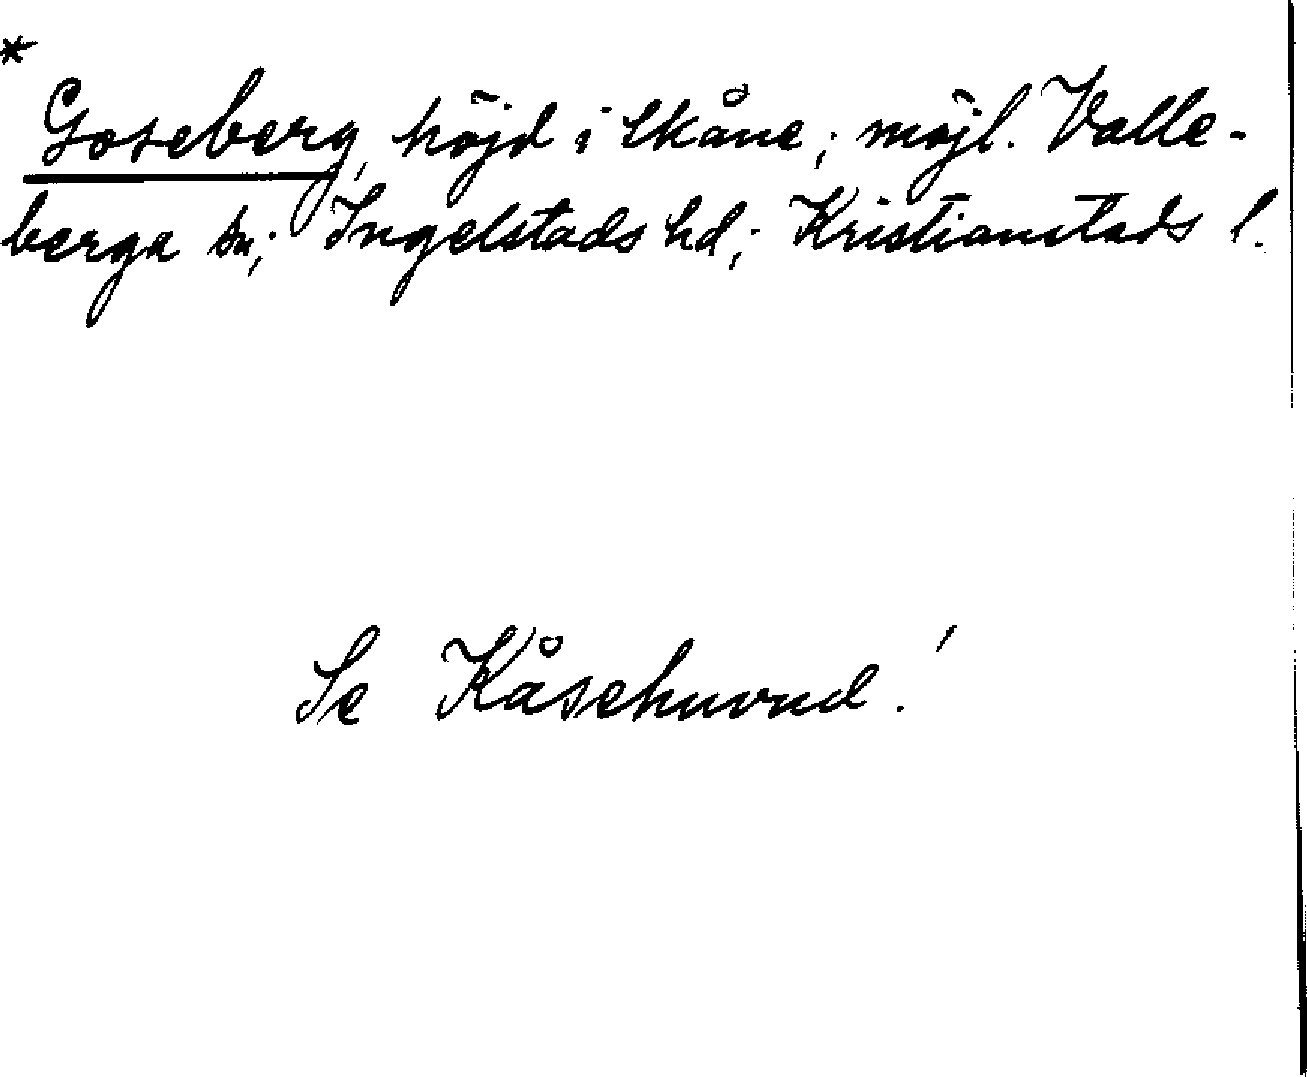 *
Goseberg, höjd i Skåne; möjl. Valle-
berga sn; Ingelstads hd; Kristianstads l.
Se Kåsehuvud!